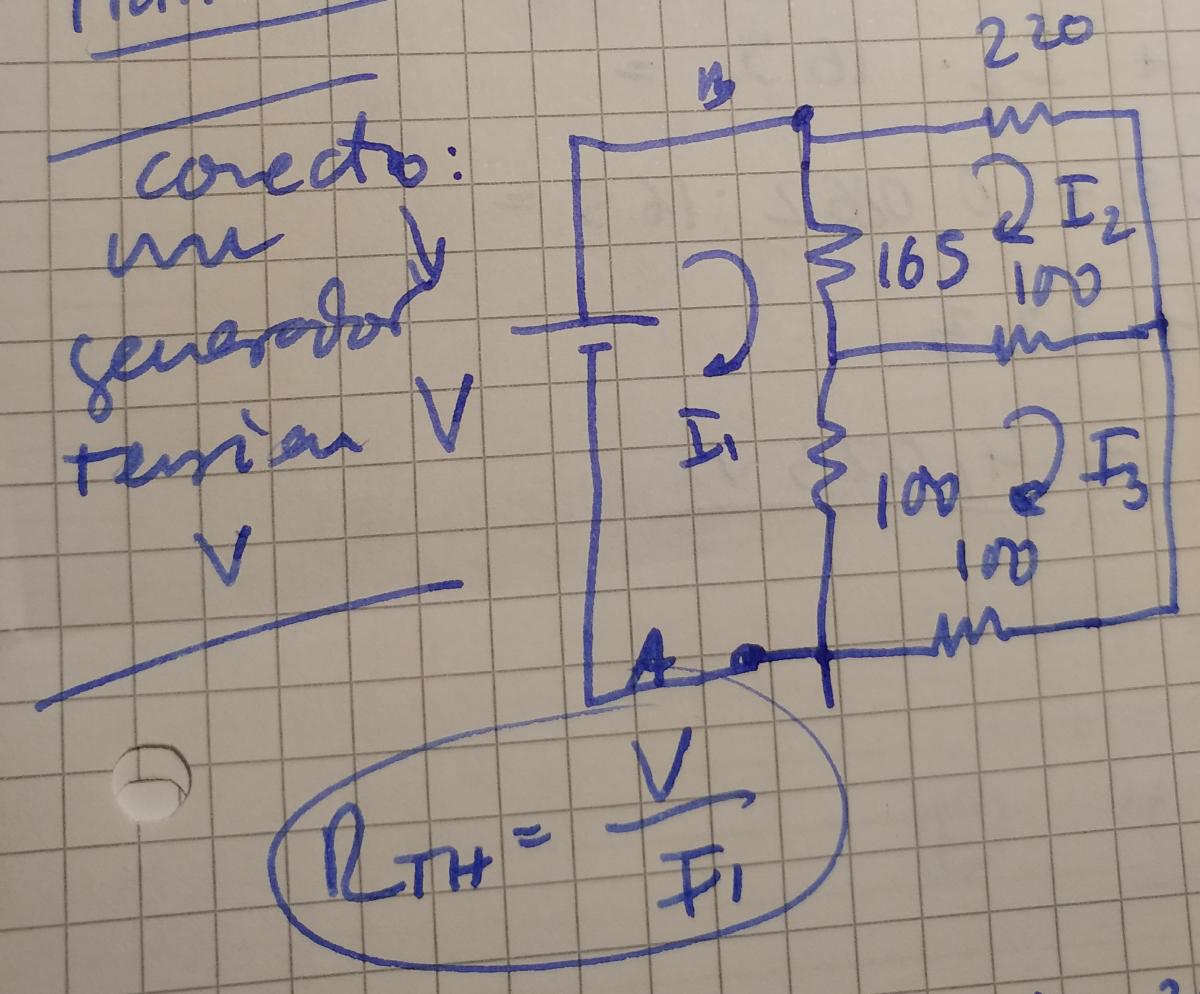 conecto:
un
generador
tensión V
V
B
220
I2
165
100
I1
100
I3
100
A
RTH = V
I1